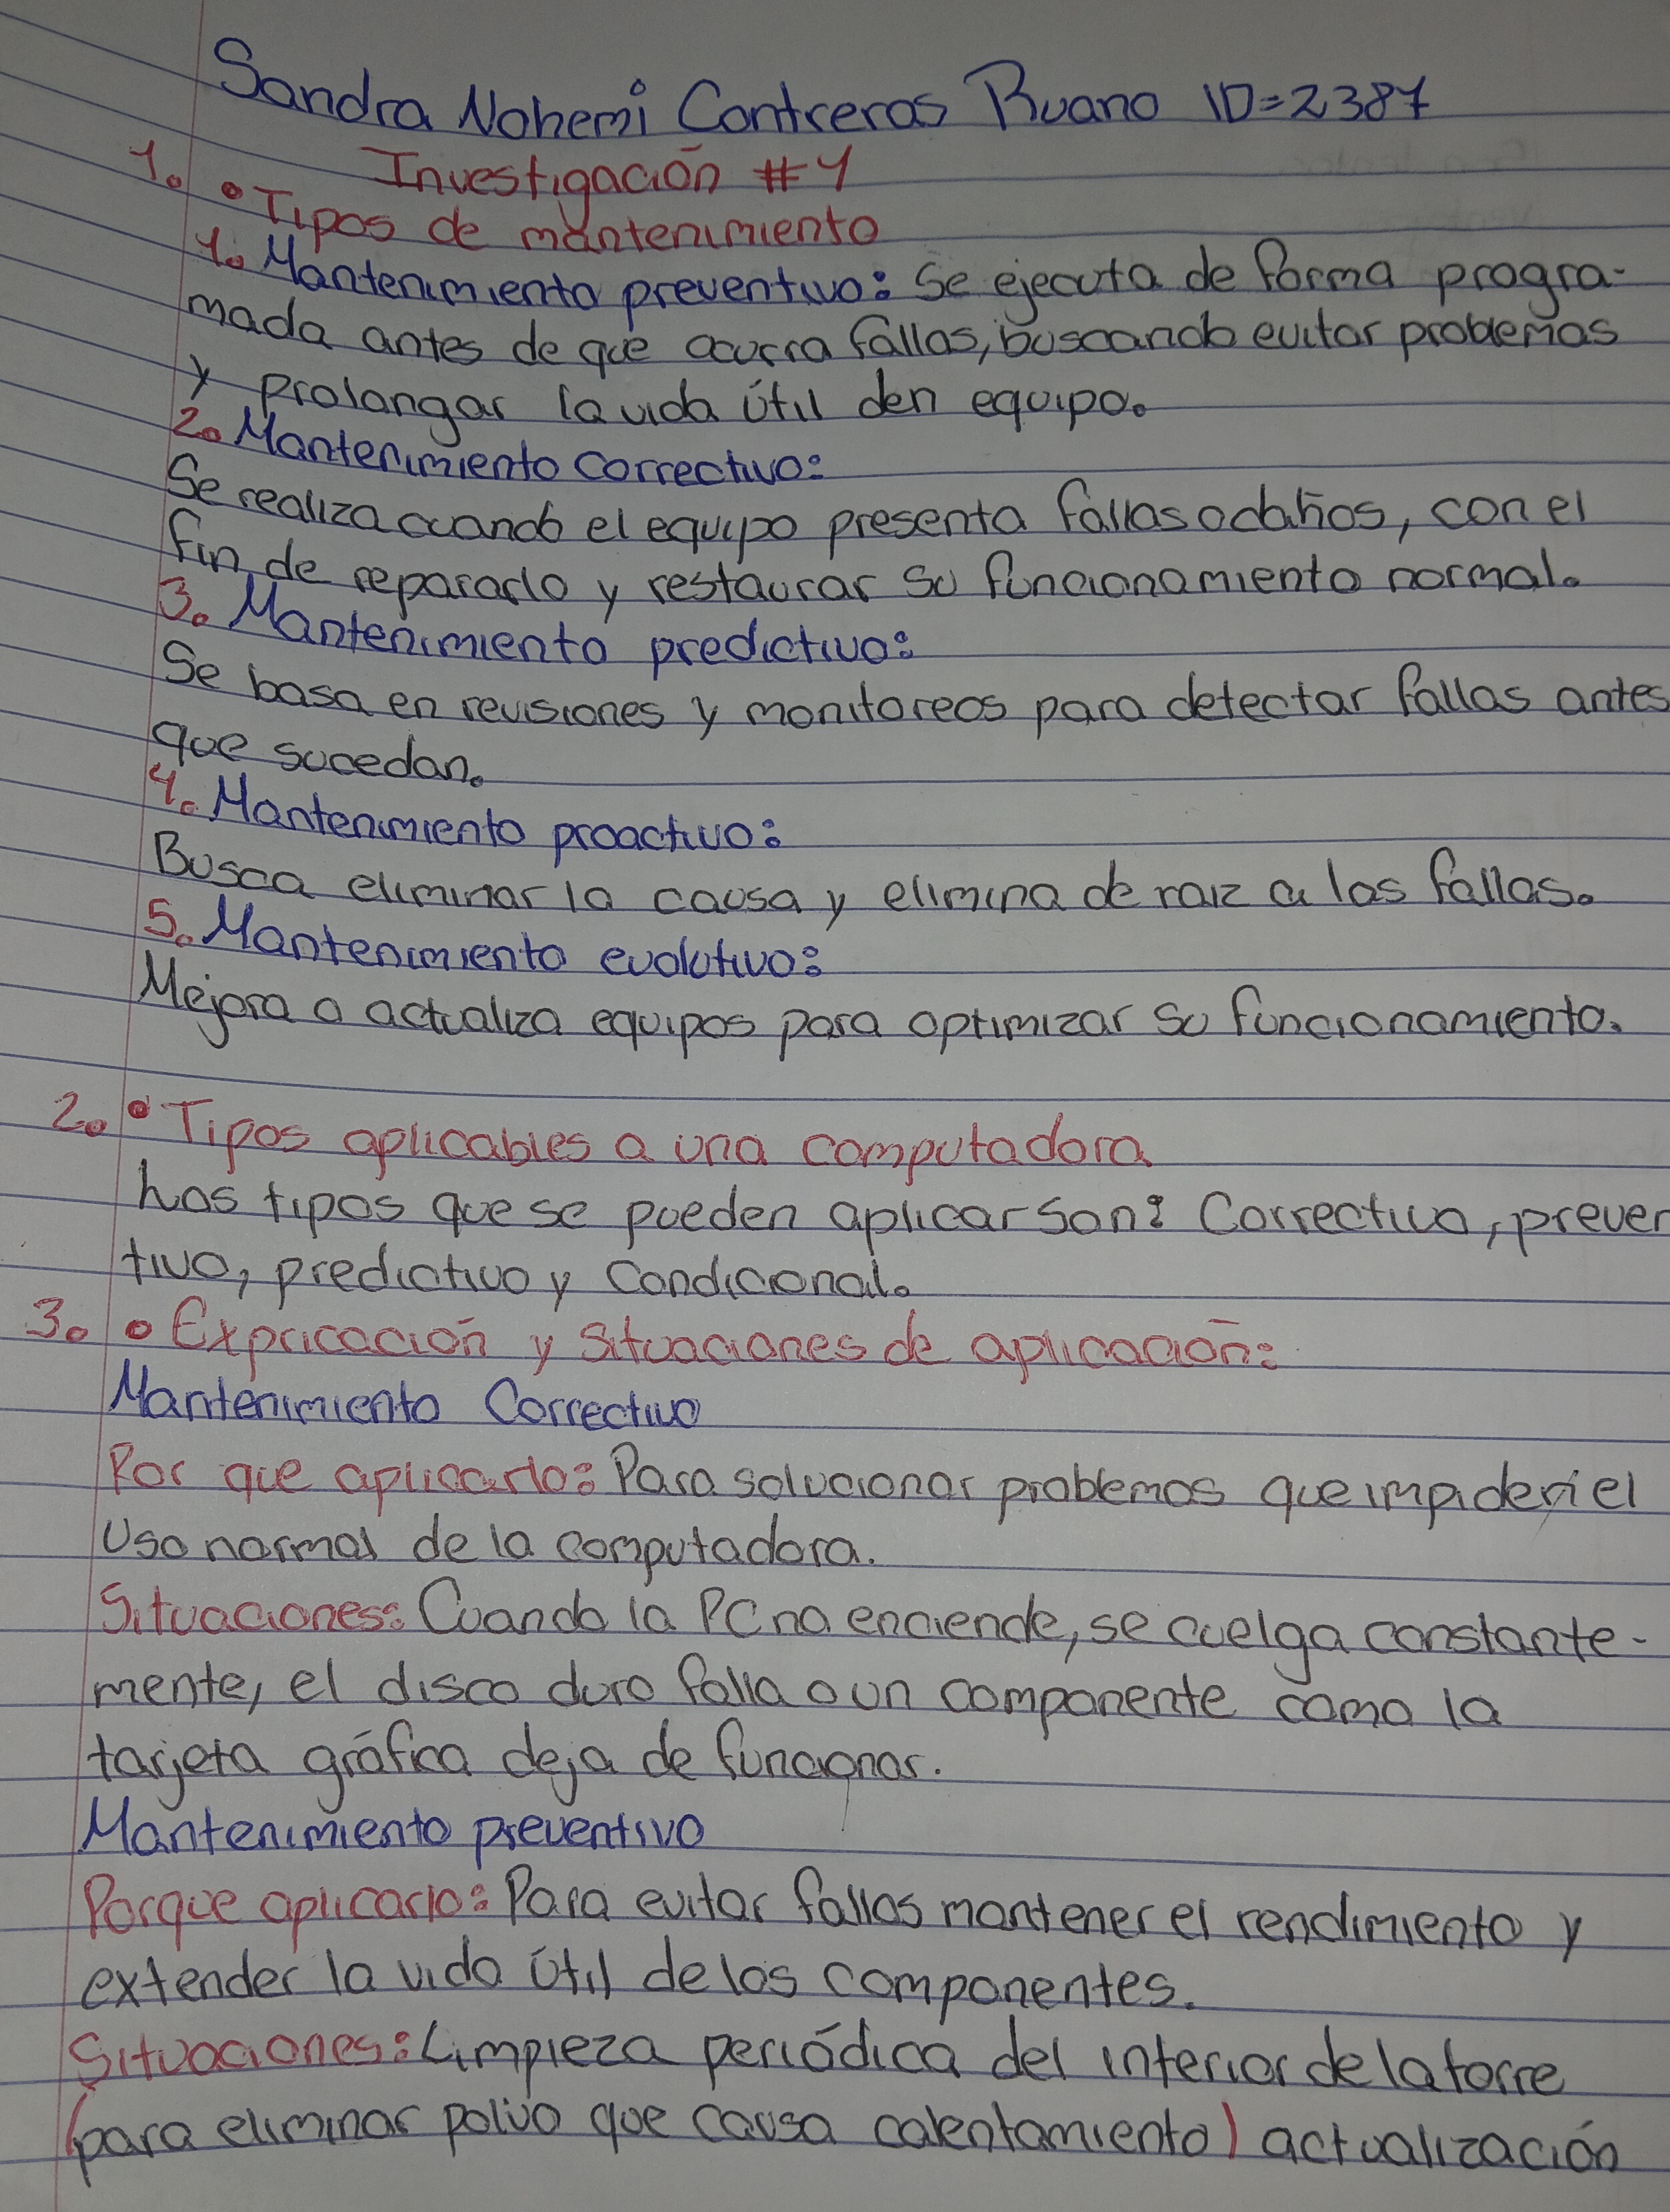 Sandra Nohemi Contreras Ruano ID=2387
Investigación #1
1. • Tipos de mantenimiento
1. Mantenimiento preventivo: Se ejecuta de forma progra-
mada antes de que ocurra fallas, buscando evitar problemas
y prolongar la vida útil den equipo.
2. Mantenimiento correctivo:
Se realiza cuando el equipo presenta fallas o daños, con el
fin de repararlo y restaurar su funcionamiento normal.
3. Mantenimiento predictivo:
Se basa en revisiones y monitoreos para detectar fallas antes
que sucedan.
4. Mantenimiento proactivo:
Busca eliminar la causa y elimina de raiz a las fallas.
5. Mantenimiento evolutivo:
Mejora o actualiza equipos para optimizar su funcionamiento.
2. • Tipos aplicables a una computadora
Los tipos que se pueden aplicar son: Correctivo, preven
tivo, predictivo y Condicional.
3. • Expricación y situaciones de aplicación:
Mantenimiento Correctivo
Por que aplicarlo: Para solucionar problemas que impiden el
uso normal de la computadora.
Situaciones: Cuando la PC no enciende, se cuelga constante-
mente, el disco duro falla o un componente como la
tarjeta gráfica deja de funcionar.
Mantenimiento preventivo
Porque aplicarlo: Para evitar fallas mantener el rendimiento y
extender la vida útil de los componentes.
Situaciones: Limpieza periódica del interior de la torre
(para eliminar polvo que causa calentamiento) actualización